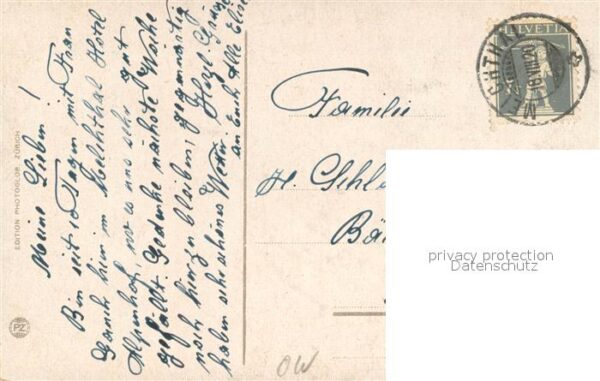 Meine Lieben!
Bin seit 10 Tagen mit Frau
hier im Melchthal Hotel
Alpenhof, wo es uns sehr gut
gefällt. Gedenke nächste Woche
noch hier zu bleiben, gegenwärtig
haben sehr schönes Wetter. Herzl. Grüsse
an Euch Alle Elise
EDITION PHOTOGLOB, ZÜRICH
PZ
HELVETIA
MELCHTHAL
Familie
H. Schl
Bä
privacy protection
Datenschutz
OW